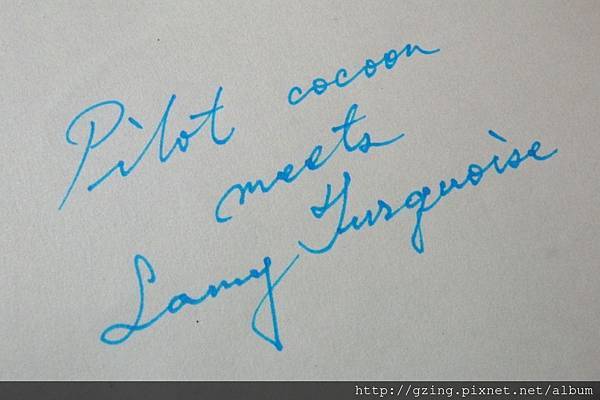 Pilot cocoon
meets
Lamy Turquoise
http://gzing.pixnet.net/album